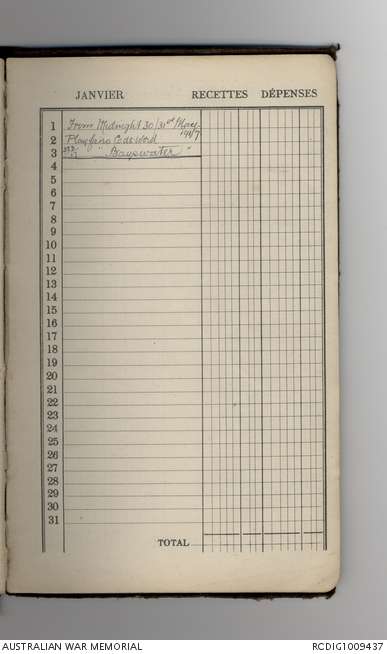 JANVIER RECETTES DÉPENSES
1 From Midnight 30/31st May
1917
2 Playfair Code Word
3 "Bayswater"
4
5
6
7
8
9
10
11
12
13
14
15
16
17
18
19
20
21
22
23
24
25
26
27
28
29
30
31
TOTAL
AUSTRALIAN WAR MEMORIAL RCDIG1009437